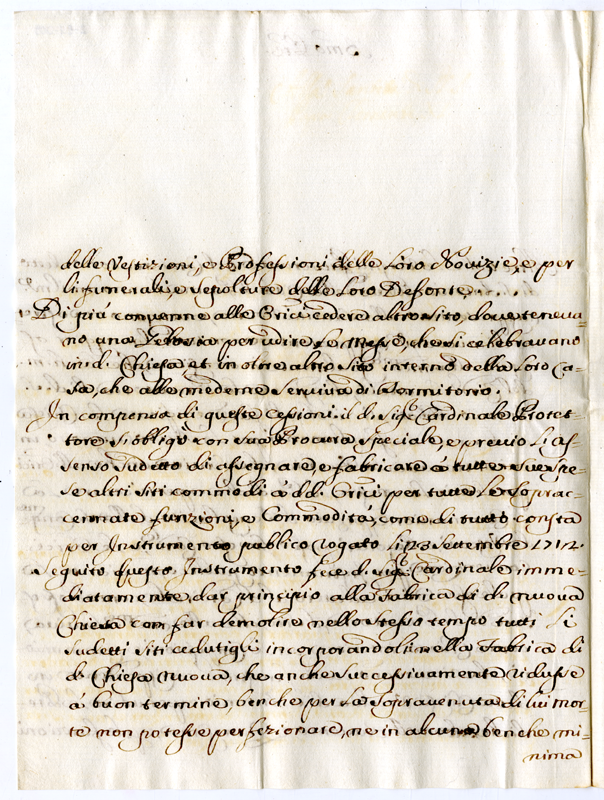 delle Vestizioni, e Professioni delle Loro Novizie, e per
li funerali, e sepolture delle Loro Defonte. . . . .
Di più convenne alle cedere altro sito, dove teneva-
no una per udire le Messe, che si celebravano
in d.ª Chiesa et in oltre altro sito interno della Loro Ca-
sa, che alle medeme serviva di Dormitorio.
In compenso di queste cessioni il d.º Sig.r Cardinale Protet-
tore si obligò con sua Procura speciale, e previo l'As-
senso sudetto di assegnare, e fabricare à tutte sue spe-
se altri siti commodi à dd. per tutte le soprac-
cennate funzioni, e Commodità, come di tutto consta
per Instrumento publico rogato li 23 Settembre 1712.
Seguito questo Instrumento fece d.º Sig.r Cardinale imme-
diatamente dar principio alla Fabrica di d.ª nuova
Chiesa con far demolire nello stesso tempo tutti li
sudetti siti cedutigli incorporandoli nella Fabrica di
d.ª Chiesa nuova, che anche successivamente ridusse
à buon termine, benche per la sopravenuta di lui mor-
te non potesse perfezionare, ne in alcuna, benche mi-
nima